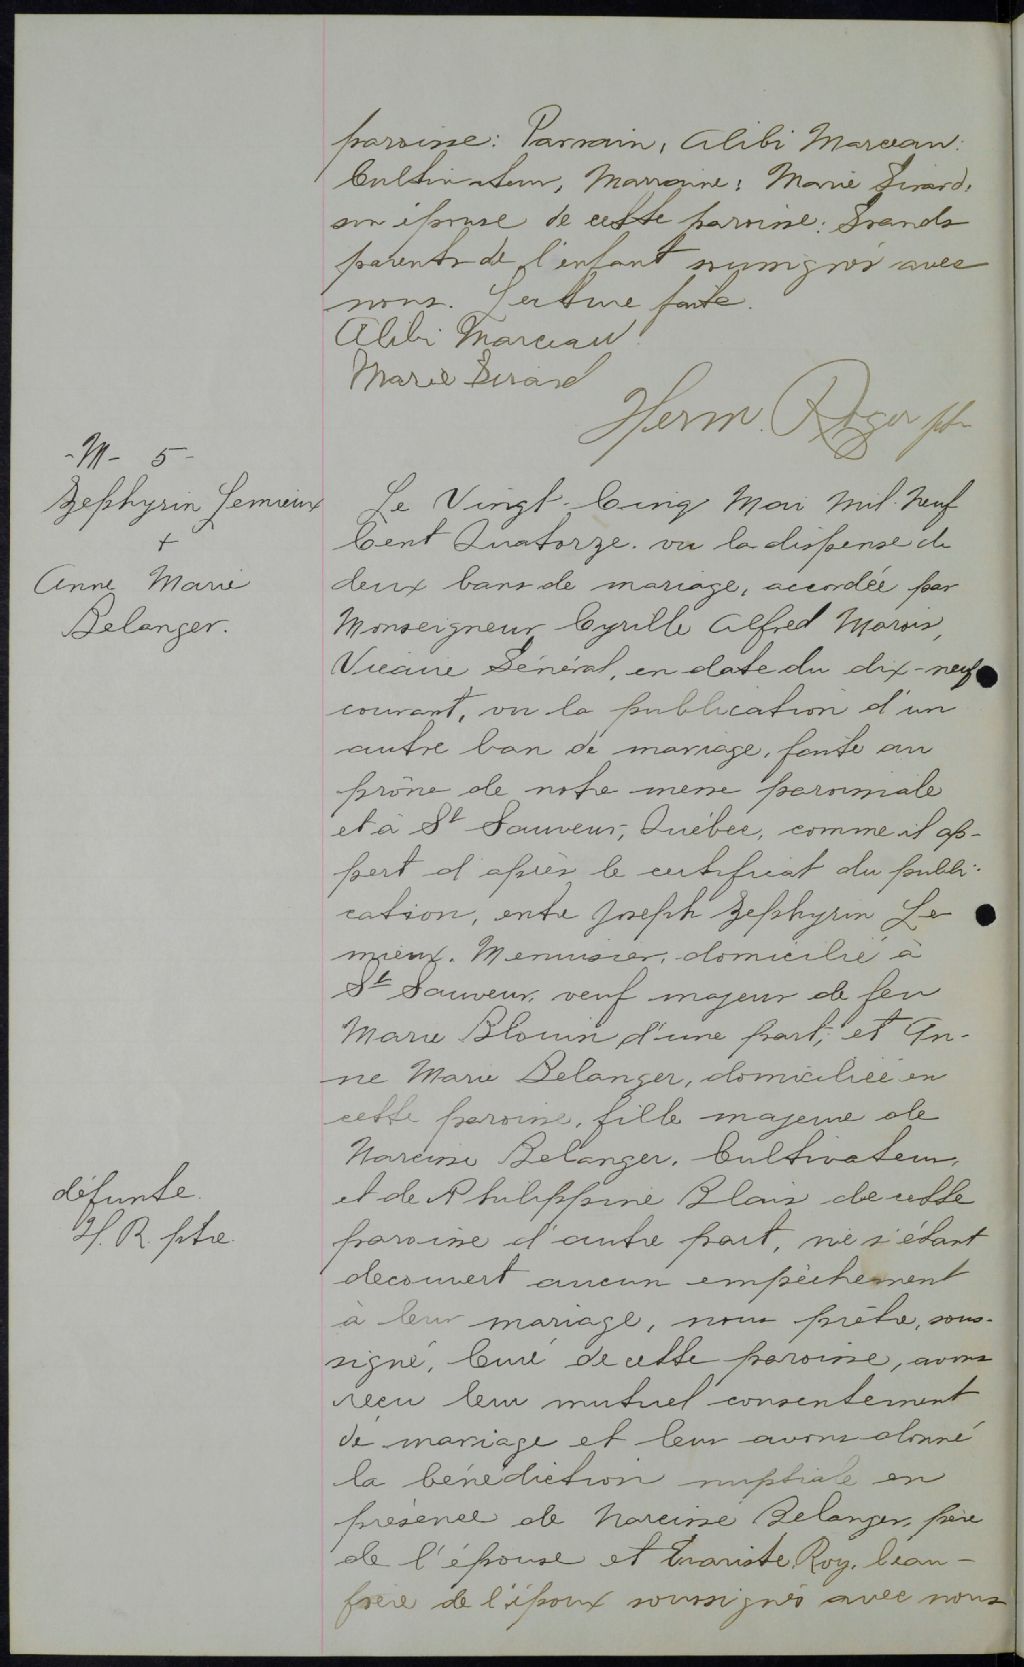 paroisse: Parrain, Alibi Marceau:
Cultivateur, Marraine: Marie Girard,
son épouse de cette paroisse: Grands
parents de l'enfant soussignés avec
nous. Lecture faite.
Alibi Marceau
Marie Girard
Herm. Roger ptre
-M- 5-
Zephyrin Lemieux
+
Anne Marie
Belanger.
Le Vingt-Cinq Mai Mil-Neuf
Cent Quatorze. vu la dispense de
deux bans de mariage, accordée par
Monseigneur Cyrille Alfred Marois,
Vicaire Général, en date du dix-neuf
courant, vu la publication d'un
autre ban de mariage, faite au
prône de notre messe paroissiale
et à St Sauveur, Québec, comme il ap-
pert d'après le certificat du publi-
cation, entre Joseph Zephyrin Le-
mieux. Menuisier, domicilié à
St Sauveur, veuf majeur de feu
Marie Blouin d'une part; et An-
ne Marie Belanger, domiciliée en
cette paroisse, fille majeure de
Narcisse Belanger, Cultivateur,
et de Philippine Blais de cette
paroisse d'autre part, ne s'étant
decouvert aucun empêchement
à leur mariage, nous prêtre, sous-
signé, Curé de cette paroisse, avons
reçu leur mutuel consentement
de mariage et leur avons donné
la bénédiction nuptiale en
présence de Narcisse Belanger, père
de l'épouse et Evariste Roy, beau-
frère de l'époux soussignés avec nous
défunte.
H. R. ptre